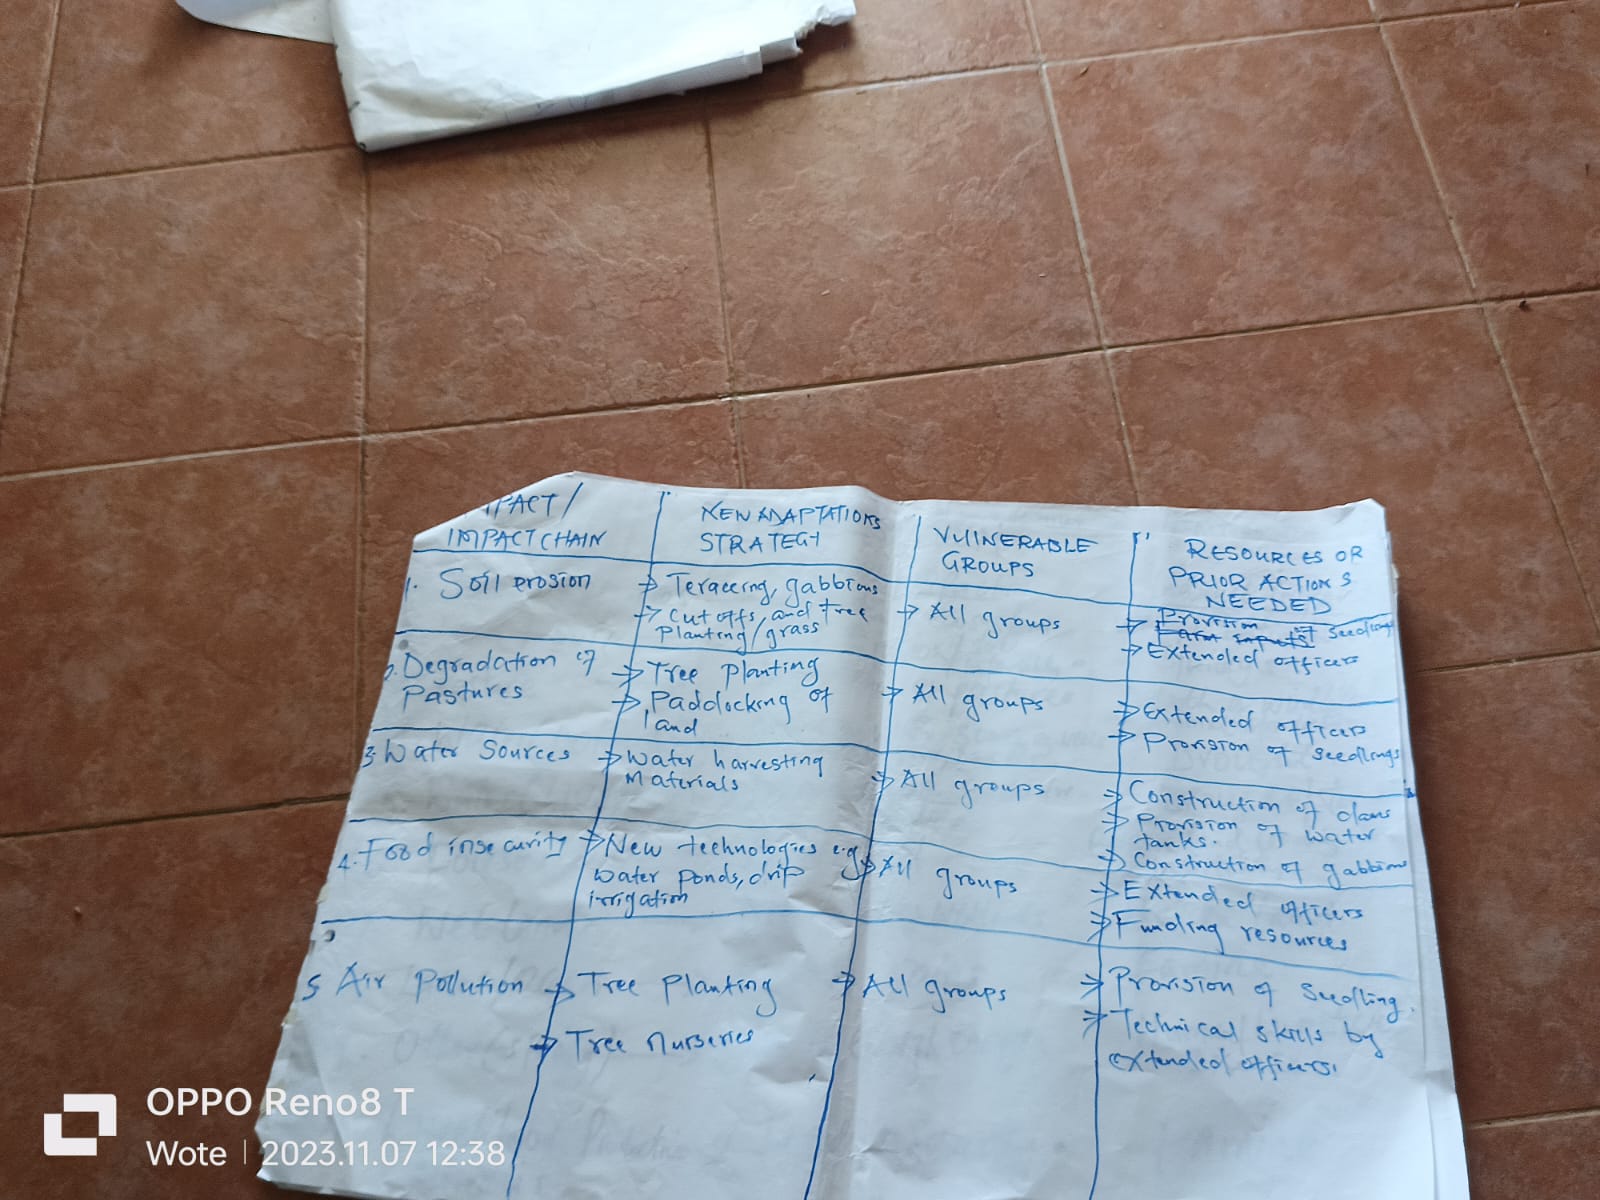 IMPACT/
IMPACT CHAIN
NEW ADAPTATIONS
STRATEGY
VULNERABLE
GROUPS
RESOURCES OR
PRIOR ACTIONS
NEEDED
1. Soil erosion
→ Teraccing, gabbions
→ Cut offs, and tree
planting/grass
→ All groups
→ Provision of seedlings
Farm inputs
→ Extended officers
2. Degradation of
Pastures
→ Tree planting
→ Paddocking of
land
→ All groups
→ Extended officers
→ Provision of seedlings
3. Water Sources
→ Water harvesting
Materials
→ All groups
→ Construction of dams
→ Provision of water
tanks.
→ Construction of gabbions
4. Food insecurity
→ New technologies e.g
water ponds, drip
irrigation
→ All groups
→ Extended officers
→ Funding resources
5 Air Pollution
→ Tree Planting
→ Tree nurseries
→ All groups
→ Provision of seedling.
→ Technical skills by
extended officers.
OPPO Reno8 T
Wote | 2023.11.07 12:38